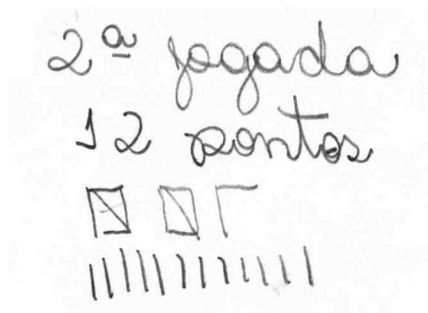 2ª jogada
12 pontos